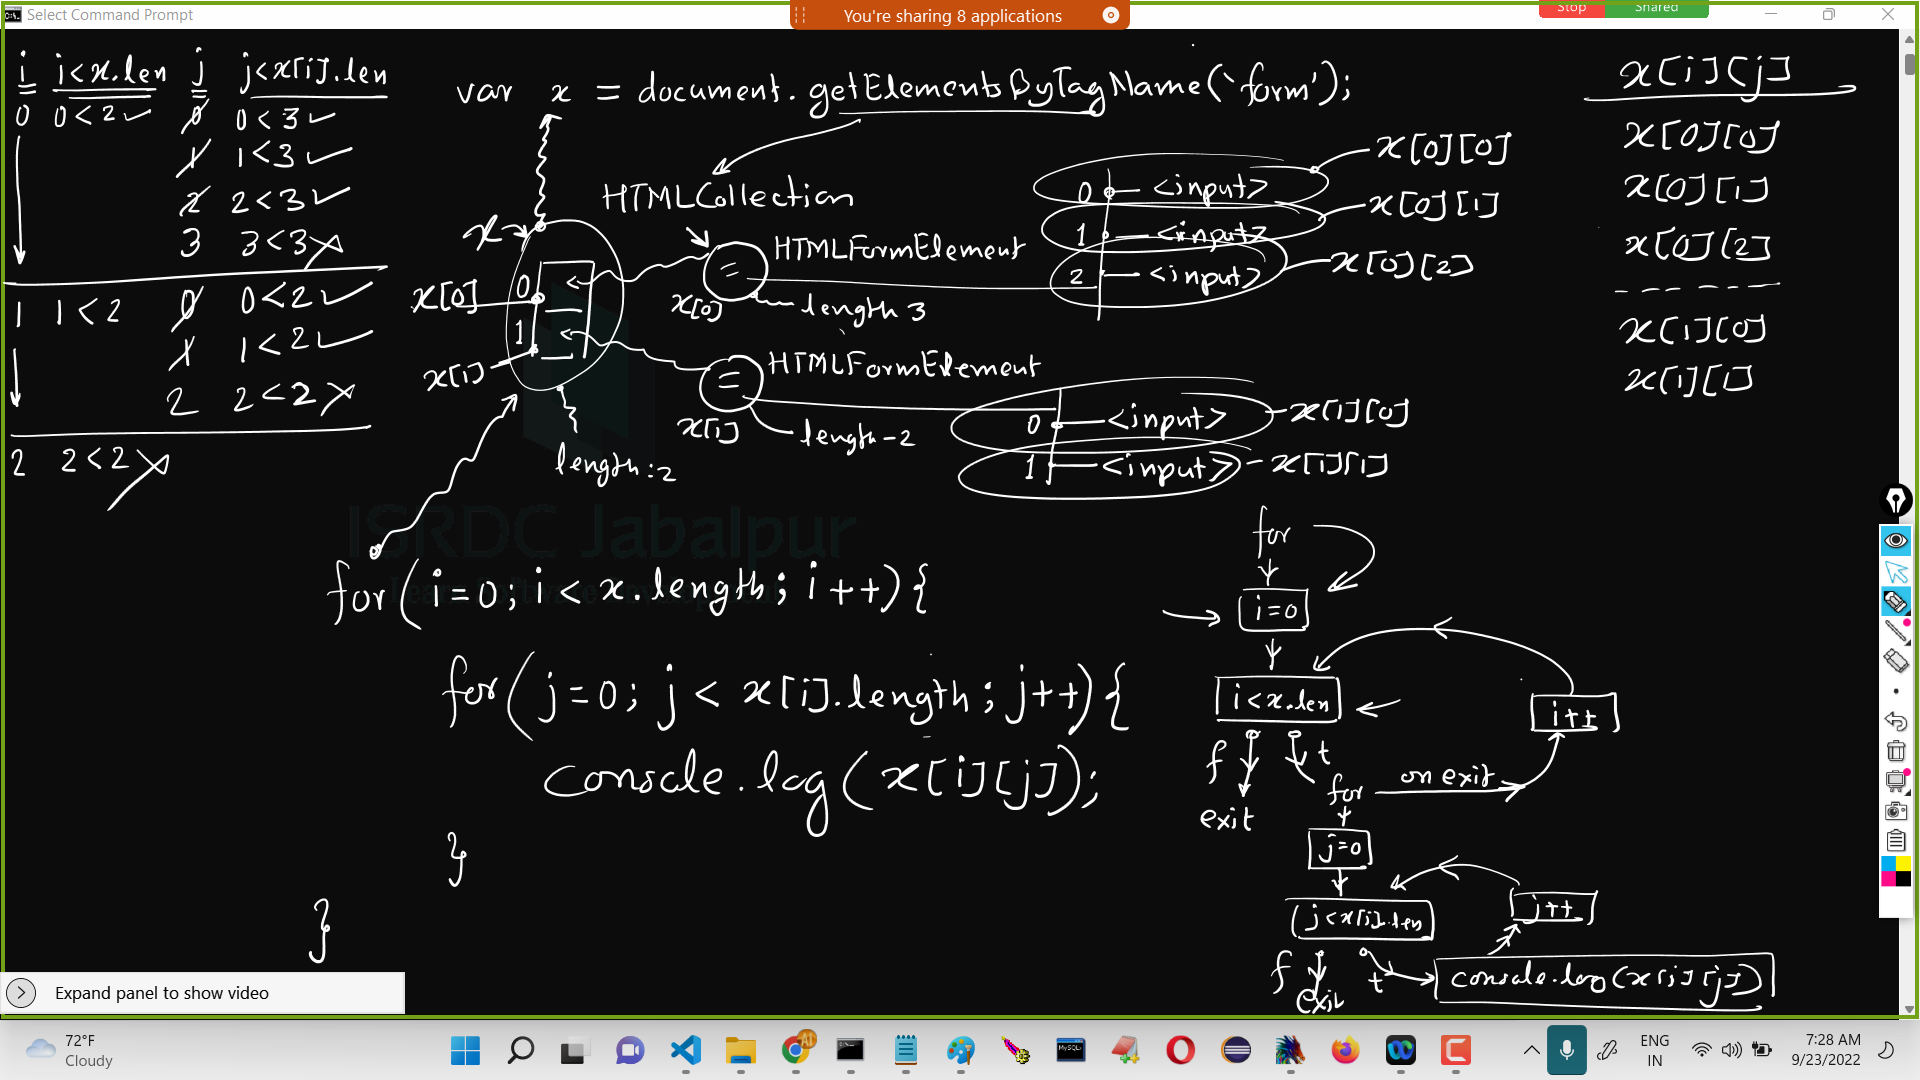 Select Command Prompt
You're sharing 8 applications
Stop Shared
i i<x.len j j<x[i].len
0 0<2✓ 0 0<3✓
1 1<3✓
2 2<3✓
3 3<3✗
1 1<2 0 0<2✓
1 1<2✓
2 2<2✗
2 2<2✗
var x = document.getElementsByTagName('form');
HTMLCollection
x
0
1
x[0]
x[1]
length:2
HTMLFormElement
x[0]
length 3
HTMLFormElement
x[1]
length-2
0 <input> x[0][0]
1 <input> x[0][1]
2 <input> x[0][2]
0 <input> x[1][0]
1 <input> x[1][1]
x[i][j]
x[0][0]
x[0][1]
x[0][2]
x[1][0]
x[1][1]
ISRDC Jabalpur
for(i=0; i<x.length; i++){
for(j=0; j<x[i].length; j++){
console.log(x[i][j]);
}
}
for
i=0
i<x.len
i++
f t
exit
for on exit
j=0
j<x[i].len
j++
f t
exit
console.log(x[i][j])
Expand panel to show video
72°F
Cloudy
ENG
IN
7:28 AM
9/23/2022